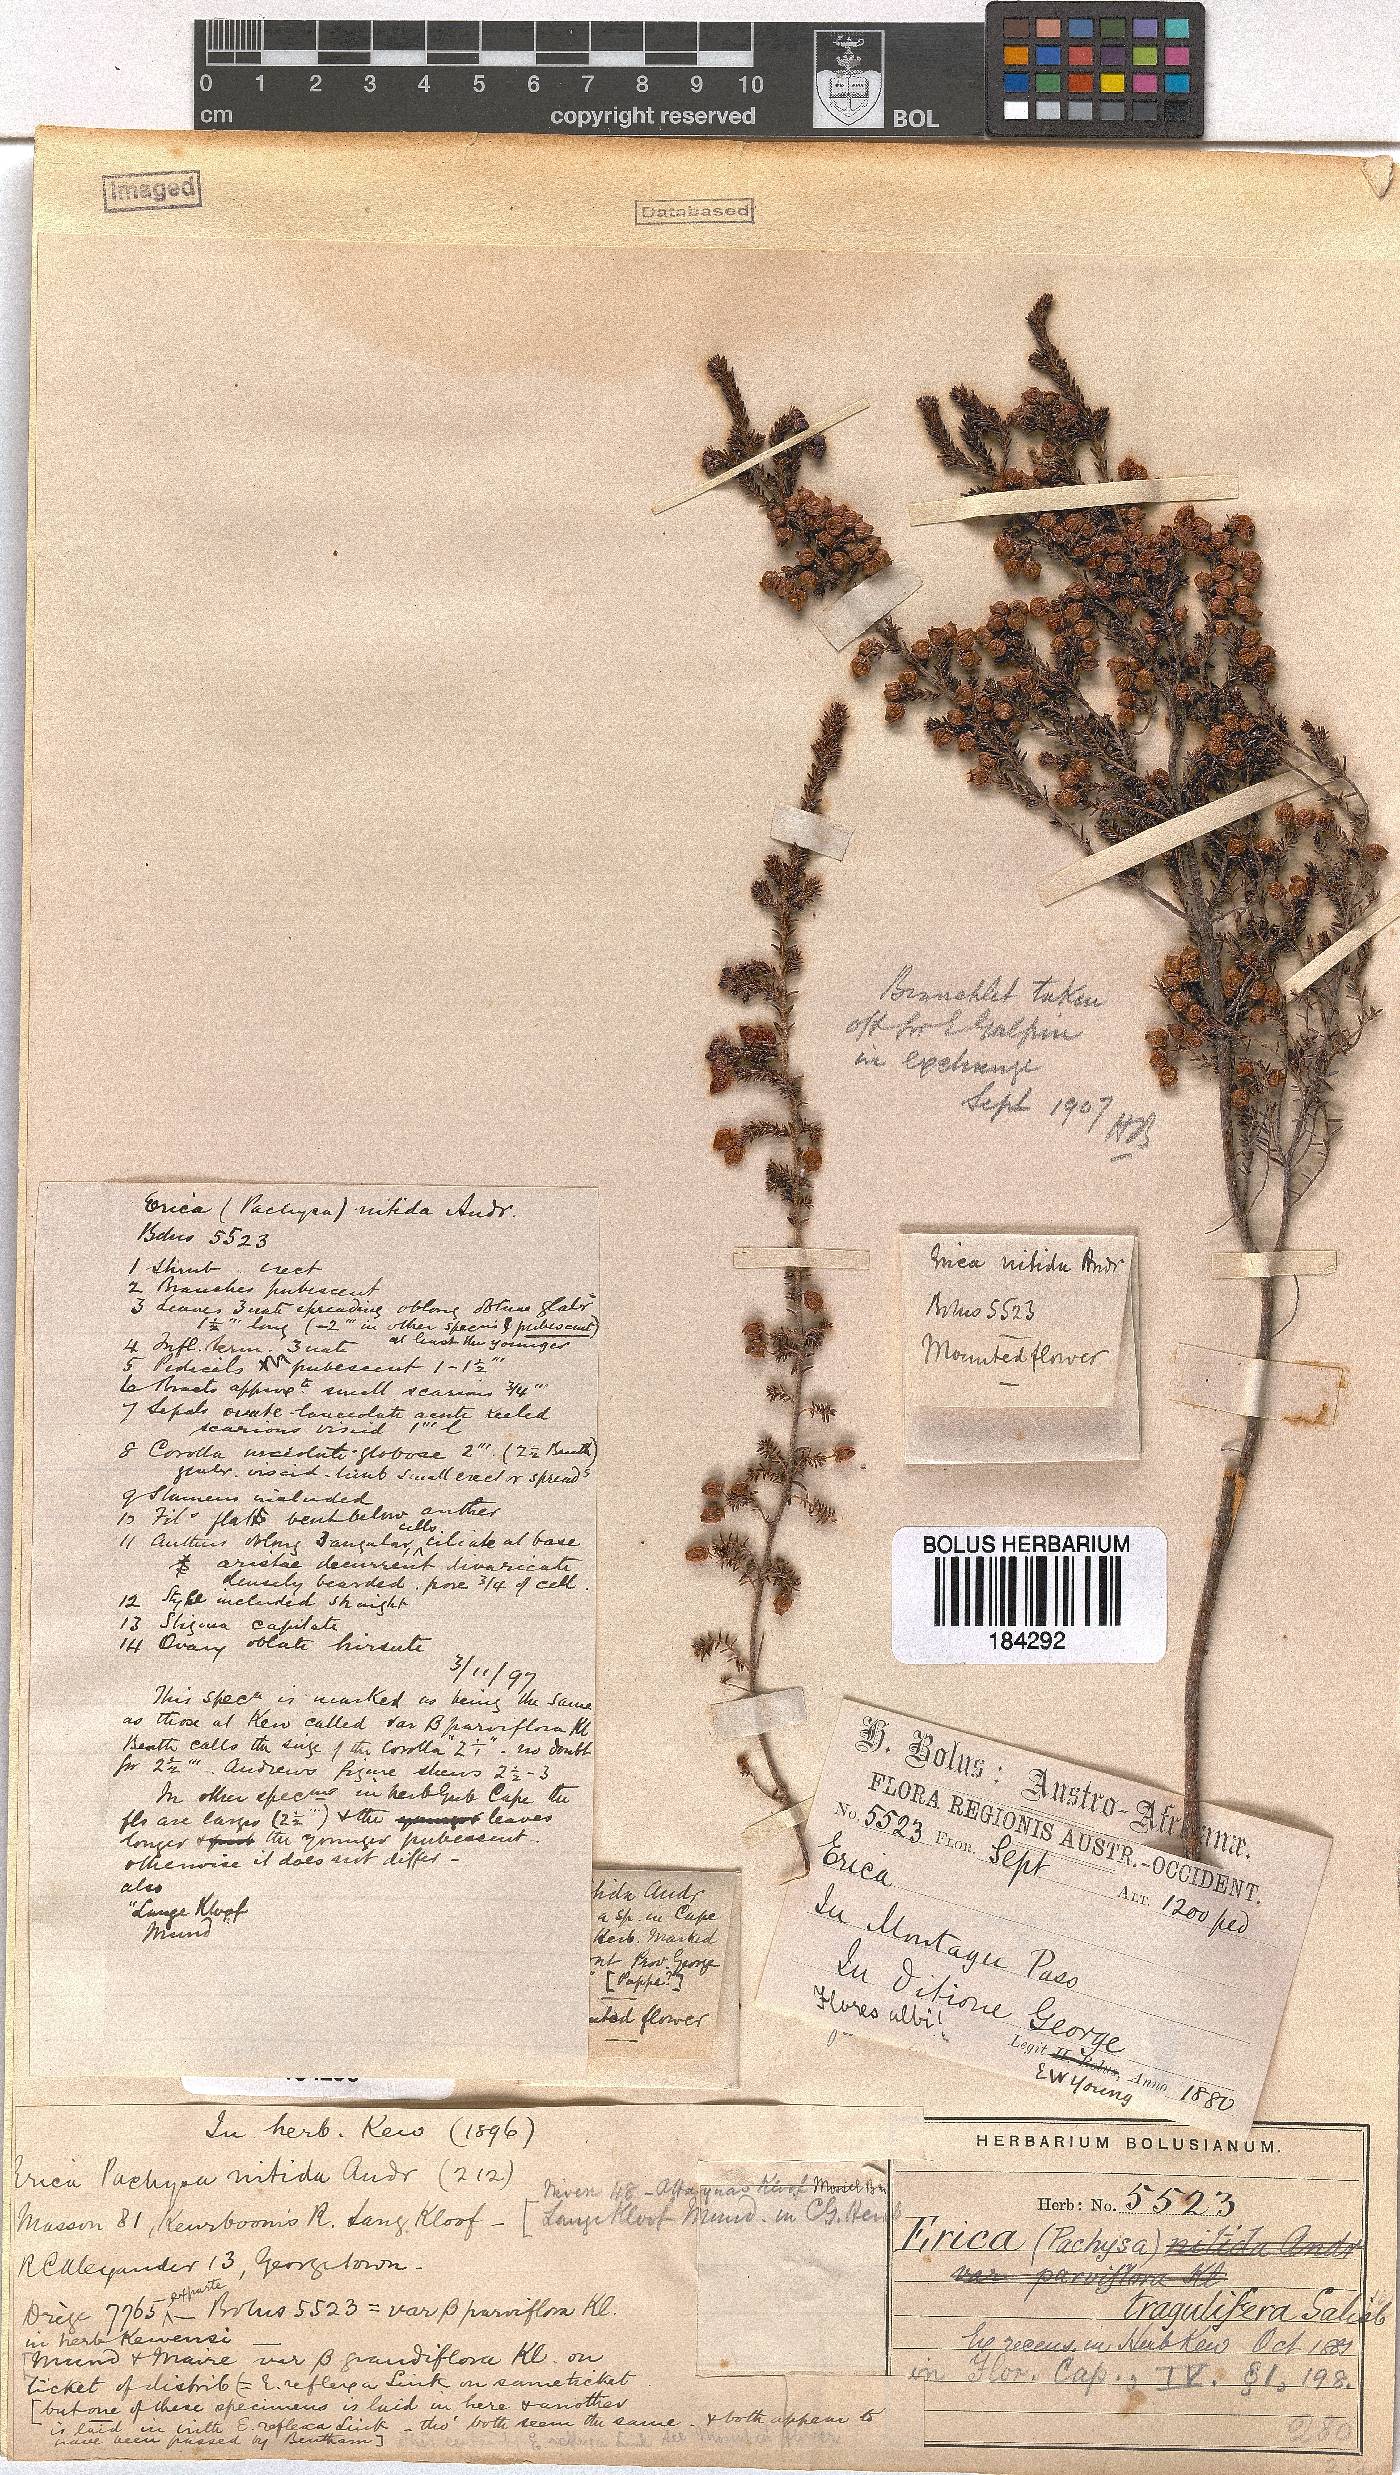 0 1 2 3 4 5 6 7 8 9 10
cm
copyright reserved
BOL
Imaged
Databased
Branchlet taken
off for E Galpin
in exchange
Sept 1907 HB
Erica (Pachysa) nitida Andr.
Bolus 5523
1 Shrub erect
2 Branches pubescent
3 Leaves 3nate spreading oblong obtuse glabr
1½''' long (-2''' in other specns & pubescent)
at least the younger
4 Infl. term. 3nate
5 Pedicels pubescent 1-1½'''
6 Bracts approxte small scarious 3/4'''
7 Sepals ovate-lanceolate acute keeled
scarious viscid 1''' l
8 Corolla urceolate-globose 2''' (2½ Benth)
glabr. viscid - limb small erect or spreadg
9 Stamens included
10 Fils flat bent below anther
11 Anthers oblong 3angular, cells ciliate at base
aristae decurrent divaricate
densely bearded. pore 3/4 of cell.
12 Style included straight
13 Stigma capitate
14 Ovary oblate hirsute
3/11/97
This specn is marked as being the same
as those at Kew called var β parviflora Kl
Benth calls the size of the corolla "2½" - no doubt
for 2½'''. Andrews figure shews 2½-3
In other specns in herb Gub Cape the
fls are larger (2½''') & the younger leaves
longer & the younger pubescent.
otherwise it does not differ -
also
"Lange Kloof
Mund"
Erica nitida Andr
Bolus 5523
Mounted flower
BOLUS HERBARIUM
184292
H. Bolus: Austro-Africanæ.
FLORA REGIONIS AUSTR.-OCCIDENT.
No. 5523 FLOR. Sept ALT. 1200 ped
Erica
In Montagu Pass
In ditione George
Flores albi!
Legit H. Bolus, Anno 1880
E W Young
tida Andr
a sp. in Cape
Herb. Marked
nt Prov. George
[Pappe?]
nted flower
In herb. Kew (1896)
Erica Pachysa nitida Andr (212)
Masson 81, Keurbooms R. Lang Kloof -
[Niven 48 - Attaquas Kloof
Lange Kloof Mund. in CG. Herb
R C Alexander 13, Georgetown -
Drège 7765 ex parte - Bolus 5523 = var β parviflora Kl.
in herb Kewensi -
[Mund & Maire var β grandiflora Kl. on
ticket of distrib (= E. reflexa Link on same ticket
[but one of these specimens is laid in here & another
is laid in with E. reflexa Link - tho' both seem the same - & both appear to
have been passed by Bentham]
HERBARIUM BOLUSIANUM.
Herb: No. 5523
Erica (Pachysa) nitida Andr
var parviflora Kl
tragulifera Salisb
Ex recens. in Herb Kew Oct 1881
in Flor. Cap., IV. §1, 198.
280